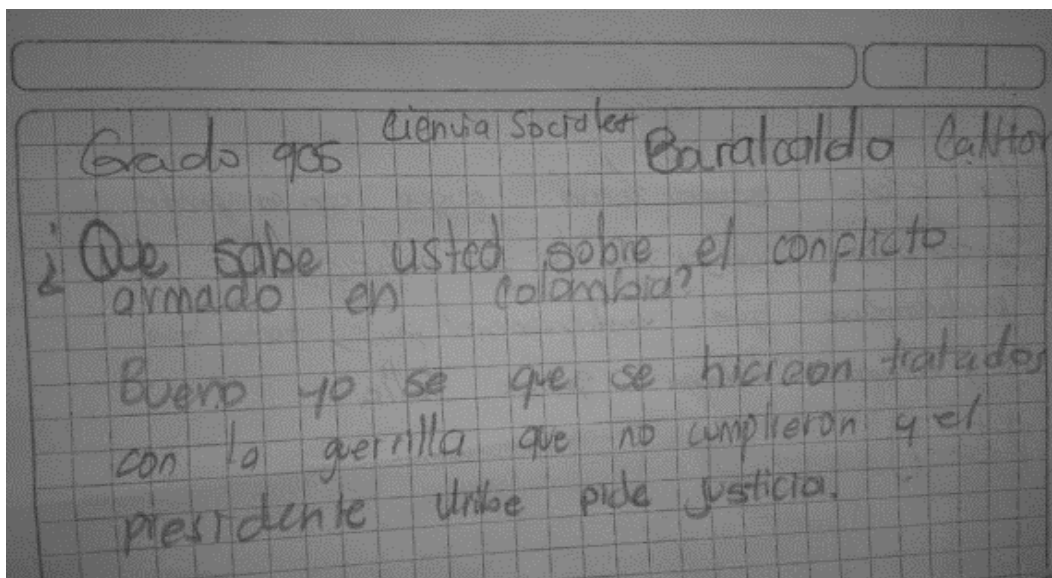 Grado 905 Ciencia Sociales
¿Que sabe usted sobre el conflicto
armado en Colombia?
Bueno yo se que se hicieon tratados
con la guerrilla que no cumplieron y el
presidente Uribe pide justicia.